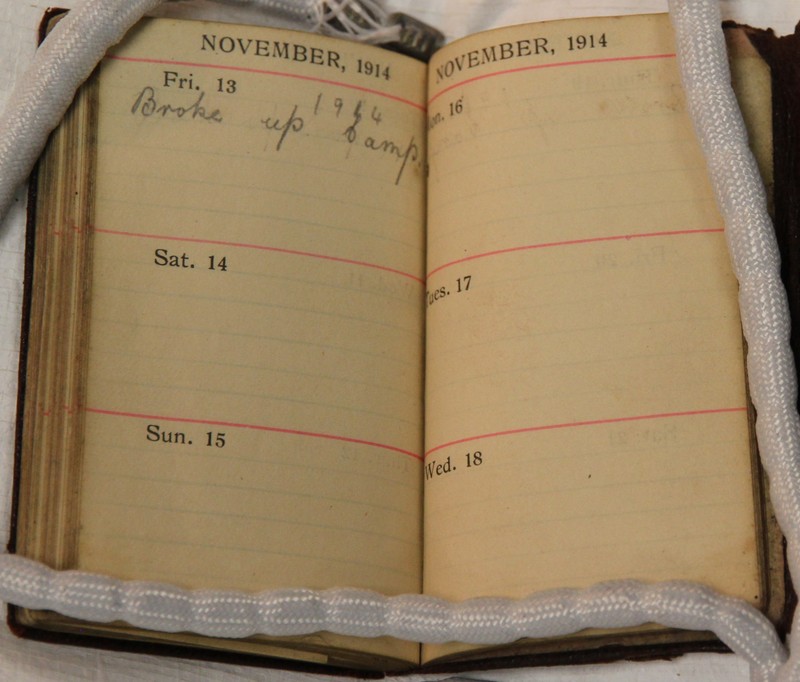 NOVEMBER, 1914
Fri. 13
1914
Broke up camp.
Sat. 14
Sun. 15
NOVEMBER, 1914
Mon. 16
Tues. 17
Wed. 18